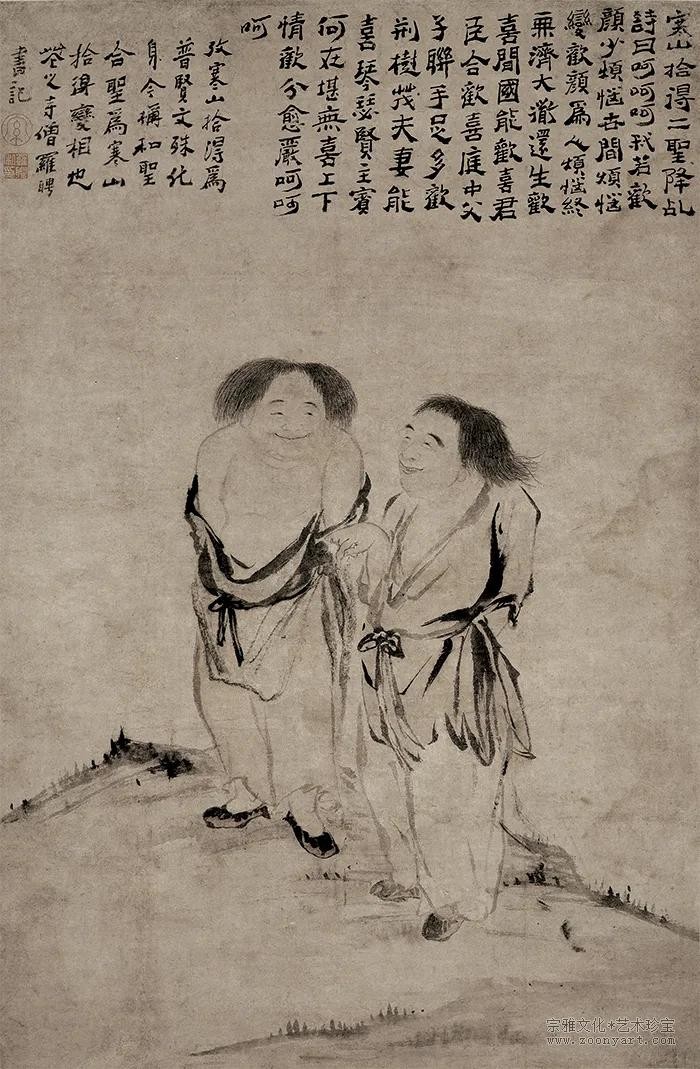 寒山拾得二聖降乩
詩曰呵呵呵我若歡
顏少煩惱世間煩惱
變歡顏為人煩惱終
無濟大道還生歡
喜間國能歡喜君
臣合歡喜庭中父
子聯手足多歡
荊樹茂夫妻能
喜琴瑟賢主賓
何在堪無喜上下
情歡分愈嚴呵呵
呵
攷寒山拾得為
普賢文殊化
身今稱和聖
合聖為寒山
拾得變相也
花之寺僧羅聘
書記
宗雅文化*艺术珍宝
www.zoonyart.com